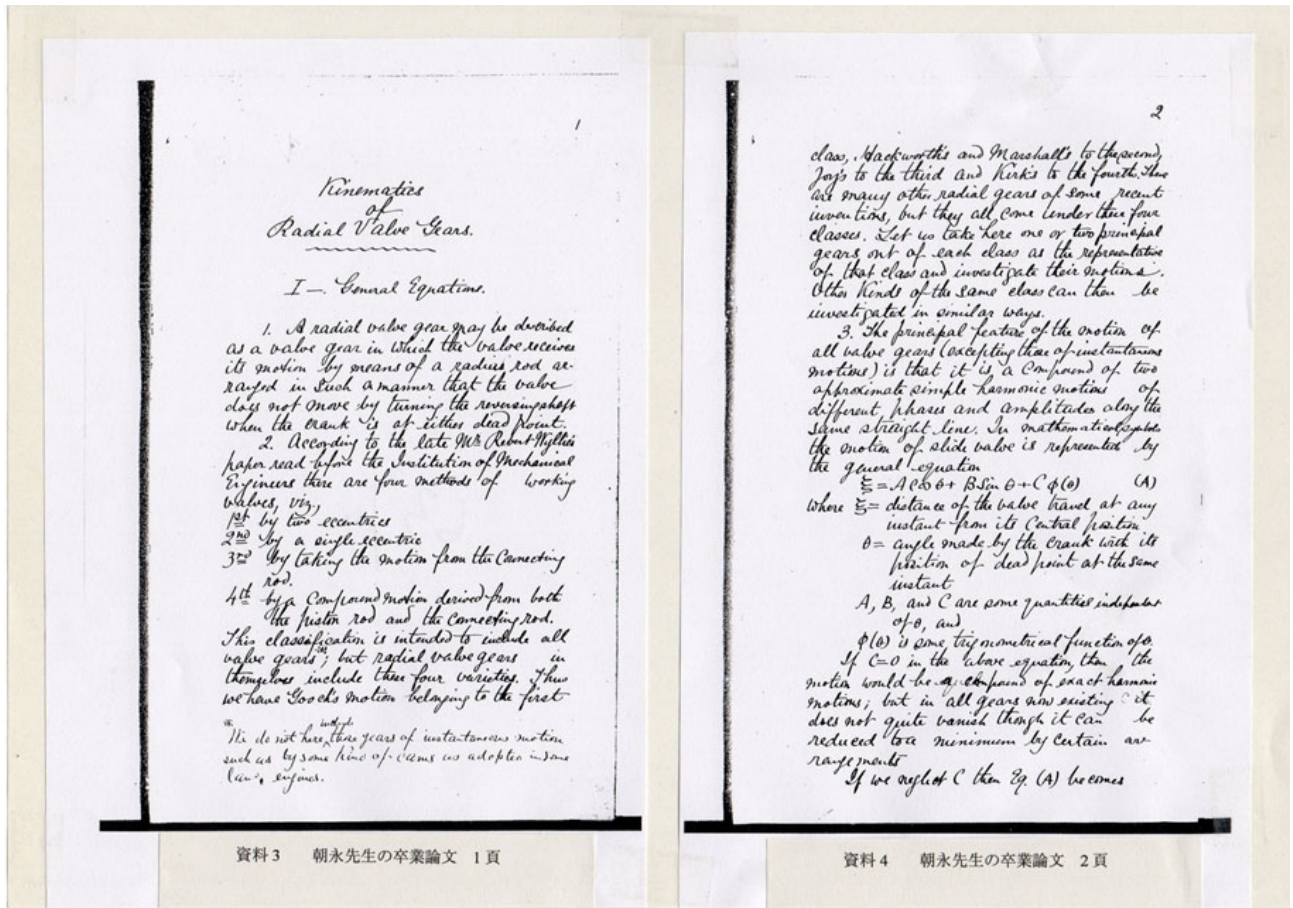 1
Kinematics
of
Radial Valve Gears.
I —. General Equations.
1. A radial valve gear may be described
as a valve gear in which the valve receives
its motion by means of a radius rod ar-
ranged in such a manner that the valve
does not move by turning the reversing shaft
when the crank is at either dead point.
2. According to the late Mr. Robert Wyllie's
paper read before the Institution of Mechanical
Engineers there are four methods of working
valves, viz,
1st by two eccentrics
2nd by a single eccentric
3rd by taking the motion from the Connecting
rod.
4th by a Compound motion derived from both
the piston rod and the connecting rod.
This classification is intended to include all
valve gears; but radial valve gears in
themselves include these four varieties. Thus
we have Gooch's motion belonging to the first
We do not here include those gears of instantaneous motion
such as by some kind of cams as adopted in some
engines.
資料3 朝永先生の卒業論文 1頁
2
class, Hackworth's and Marshall's to the second,
Joy's to the third and Kirk's to the fourth. There
are many other radial gears of some recent
inventions, but they all come under these four
classes. Let us take here one or two principal
gears out of each class as the representative
of that class and investigate their motions.
Other kinds of the same class can then be
investigated in similar ways.
3. The principal feature of the motion of
all valve gears (excepting those of instantaneous
motions) is that it is a Compound of two
approximate simple harmonic motions of
different phases and amplitudes along the
same straight line. In mathematical symbols
the motion of slide valve is represented by
the general equation
ξ = A cos θ + B sin θ + C φ(θ) (A)
where ξ = distance of the valve travel at any
instant from its Central position
θ = angle made by the crank with its
position of dead point at the same
instant
A, B, and C are some quantities independent
of θ, and
φ(θ) is some trigonometrical function of θ.
If C=0 in the above equation, then the
motion would be a compound of exact harmonic
motions; but in all gears now existing it
does not quite vanish though it can be
reduced to a minimum by certain ar-
rangements
If we neglect C then Eq. (A) becomes
資料4 朝永先生の卒業論文 2頁